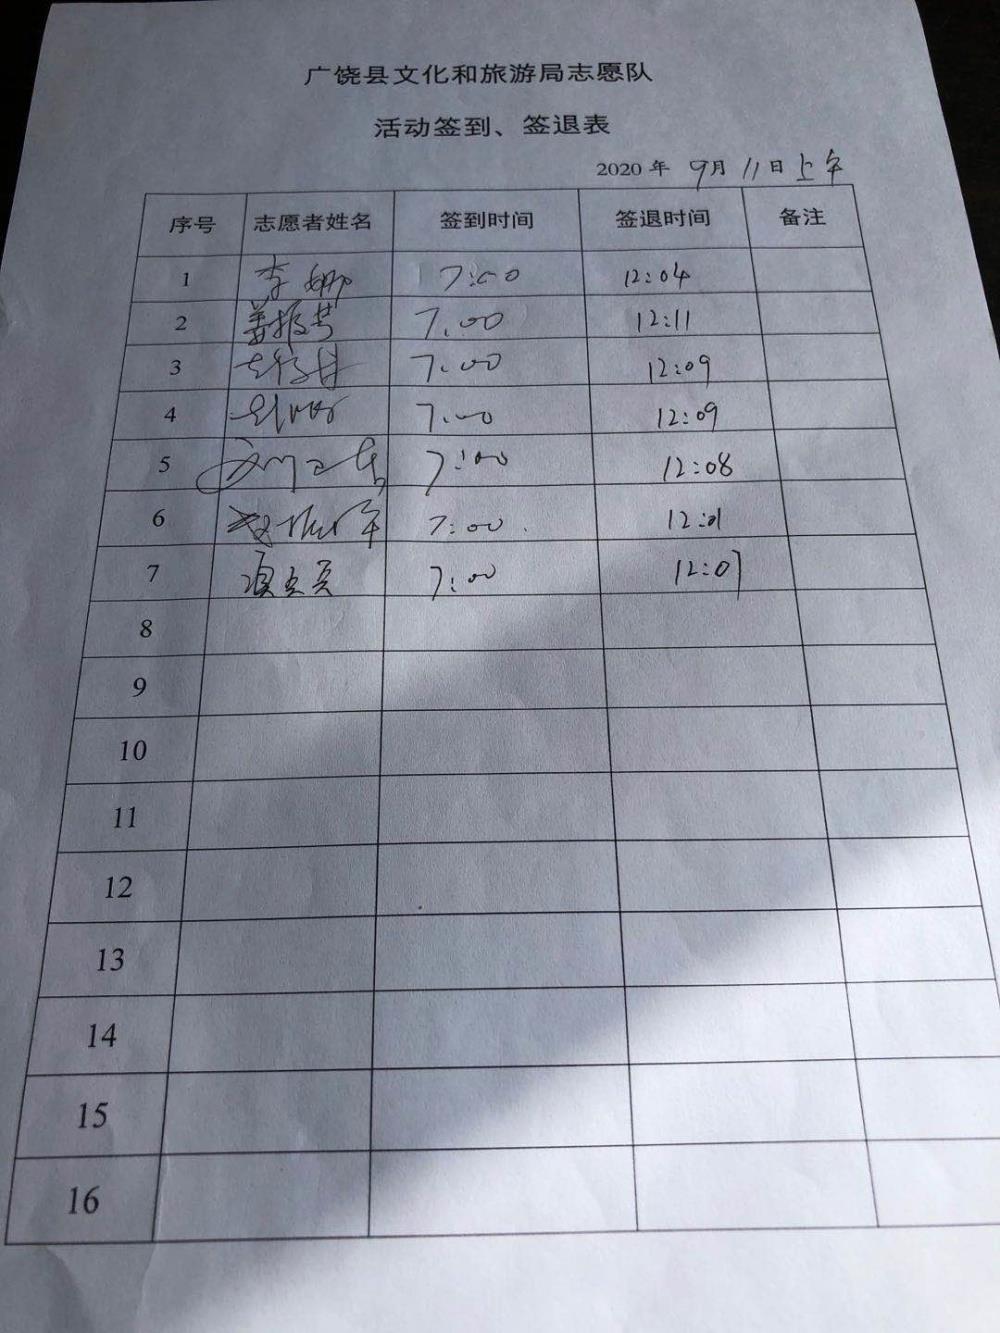 广饶县文化和旅游局志愿队
活动签到、签退表
2020 年 9月 11日上午
序号 志愿者姓名 签到时间 签退时间 备注
1 李娜 7:00 12:04
2 7:00 12:11
3 7:00 12:09
4 7:00 12:09
5 7:00 12:08
6 7:00 12:01
7 7:00 12:07
8
9
10
11
12
13
14
15
16